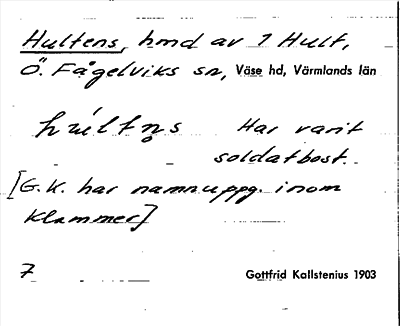 Hultens, hmd av 1 Hult,
Ö. Fågelviks sn, Väse hd, Värmlands län
Har varit
soldatbost.
[G.K. har namnuppg. inom
klammer]
7
Gottfrid Kallstenius 1903